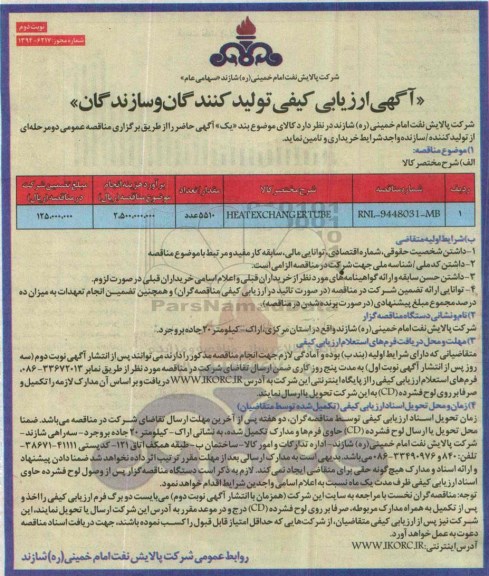 نوبت دوم
شماره مجوز: ۱۳۹۴.۶۲۱۷
شرکت پالایش نفت امام خمینی (ره) شازند «سهامی عام»
«آگهی ارزیابی کیفی تولید کنندگان و سازندگان»
شرکت پالایش نفت امام خمینی (ره) شازند در نظر دارد کالای موضوع بند «یک» آگهی حاضر را از طریق برگزاری مناقصه عمومی دو مرحله‌ای
از تولید کننده/سازنده واجد شرایط خریداری و تامین نماید.
۱) موضوع مناقصه:
الف) شرح مختصر کالا
ردیف شماره مناقصه شرح مختصر کالا مقدار/تعداد برآورد هزینه انجام موضوع مناقصه (ریال) مبلغ تضمین شرکت در مناقصه (ریال)
۱ RNL-9448031-MB HEATEXCHANGER TUBE ۵۵۱۰ عدد ۲،۵۰۰،۰۰۰،۰۰۰ ۱۲۵،۰۰۰،۰۰۰
ب) شرایط اولیه متقاضی
۱- داشتن شخصیت حقوقی، شماره اقتصادی، توانایی مالی، سابقه کار مفید و مرتبط با موضوع مناقصه
۲- داشتن کد ملی/شناسه ملی جهت شرکت در مناقصه الزامی است.
۳- داشتن حسن سابقه و ارائه گواهینامه های مورد نظر از خریداران قبلی و اعلام اسامی خریداران قبلی در صورت لزوم.
۴- توانایی ارائه تضمین شرکت در مناقصه (در صورت تائید در ارزیابی کیفی مناقصه گران) و همچنین تضمین انجام تعهدات به میزان ده
درصد مجموع مبلغ پیشنهادی (در صورت برنده شدن در مناقصه).
۲) نام و نشانی دستگاه مناقصه گزار
شرکت پالایش نفت امام خمینی (ره) شازند واقع در استان مرکزی، اراک- کیلومتر ۲۰ جاده بروجرد.
۳) مهلت و محل دریافت فرم های استعلام ارزیابی کیفی
متقاضیانی که دارای شرایط اولیه (بند ب) بوده و آمادگی لازم جهت انجام مناقصه مذکور را دارند می توانند پس از انتشار آگهی نوبت دوم (سه
روز پس از انتشار آگهی نوبت اول) به مدت پنج روز کاری ضمن ارسال تقاضای شرکت در مناقصه مورد نظر از طریق نمابر ۳۳۶۷۲۰۱۳-۰۸۶،
فرم های استعلام ارزیابی کیفی را از پایگاه اینترنتی این شرکت به آدرس WWW.IKORC.IR دریافت و بر اساس آن مدارک لازم را تکمیل و
صرفا بر روی لوح فشرده (CD) به این شرکت تحویل یا ارسال نمایند.
۴) زمان و محل تحویل اسناد ارزیابی کیفی (تکمیل شده توسط متقاضیان)
زمان تحویل اسناد ارزیابی کیفی توسط مناقصه گران، دو هفته پس از آخرین مهلت ارسال تقاضای شرکت در مناقصه می باشد. ضمنا
محل تحویل یا ارسال لوح فشرده (CD) حاوی فرم ها و مدارک تکمیل شده، به نشانی اراک- کیلومتر ۲۰ جاده بروجرد- سه راهی شازند-
شرکت پالایش نفت امام خمینی (ره) شازند- اداره تدارکات و امور کالا- ساختمان ب- طبقه همکف اتاق ۱۲۱- کد پستی ۴۱۱۱۱-۳۸۶۷۱
تلفن: ۸۴۰ و ۳۳۴۹۰۹۷۶-۰۸۶ می باشد. بدیهی است به مدارک ارسالی بعد از مهلت مقرر ترتیب اثر داده نخواهد شد ضمنا دادن پیشنهاد
و ارائه اسناد و مدارک هیچگونه حقی برای متقاضی ایجاد نمی کند. لازم به ذکر است دستگاه مناقصه گزار پس از وصول لوح فشرده حاوی
اسناد ارزیابی کیفی ظرف مدت یک ماه نسبت به اعلام اسامی واجدین شرایط اقدام خواهد نمود.
توجه: مناقصه گران نخست با مراجعه به سایت این شرکت (همزمان با انتشار آگهی نوبت دوم) می بایست دو برگ فرم ارزیابی کیفی را اخذ و
پس از تکمیل به همراه مدارک مربوطه، صرفا بر روی لوح فشرده (CD) درج و در موعد مقرر به آدرس این شرکت ارسال یا تحویل نمایند، این
شرکت نیز پس از ارزیابی کیفی متقاضیان، از شرکت هایی که حداقل امتیاز قابل قبول را کسب نموده باشند، جهت دریافت اسناد مناقصه
دعوت به عمل خواهد آورد.
آدرس اینترنتی: WWW.IKORC.IR
روابط عمومی شرکت پالایش نفت امام خمینی (ره) شازند
ParsNamadData